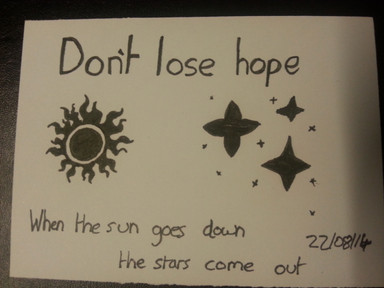 Don't lose hope
When the sun goes down
22/08/14
the stars come out